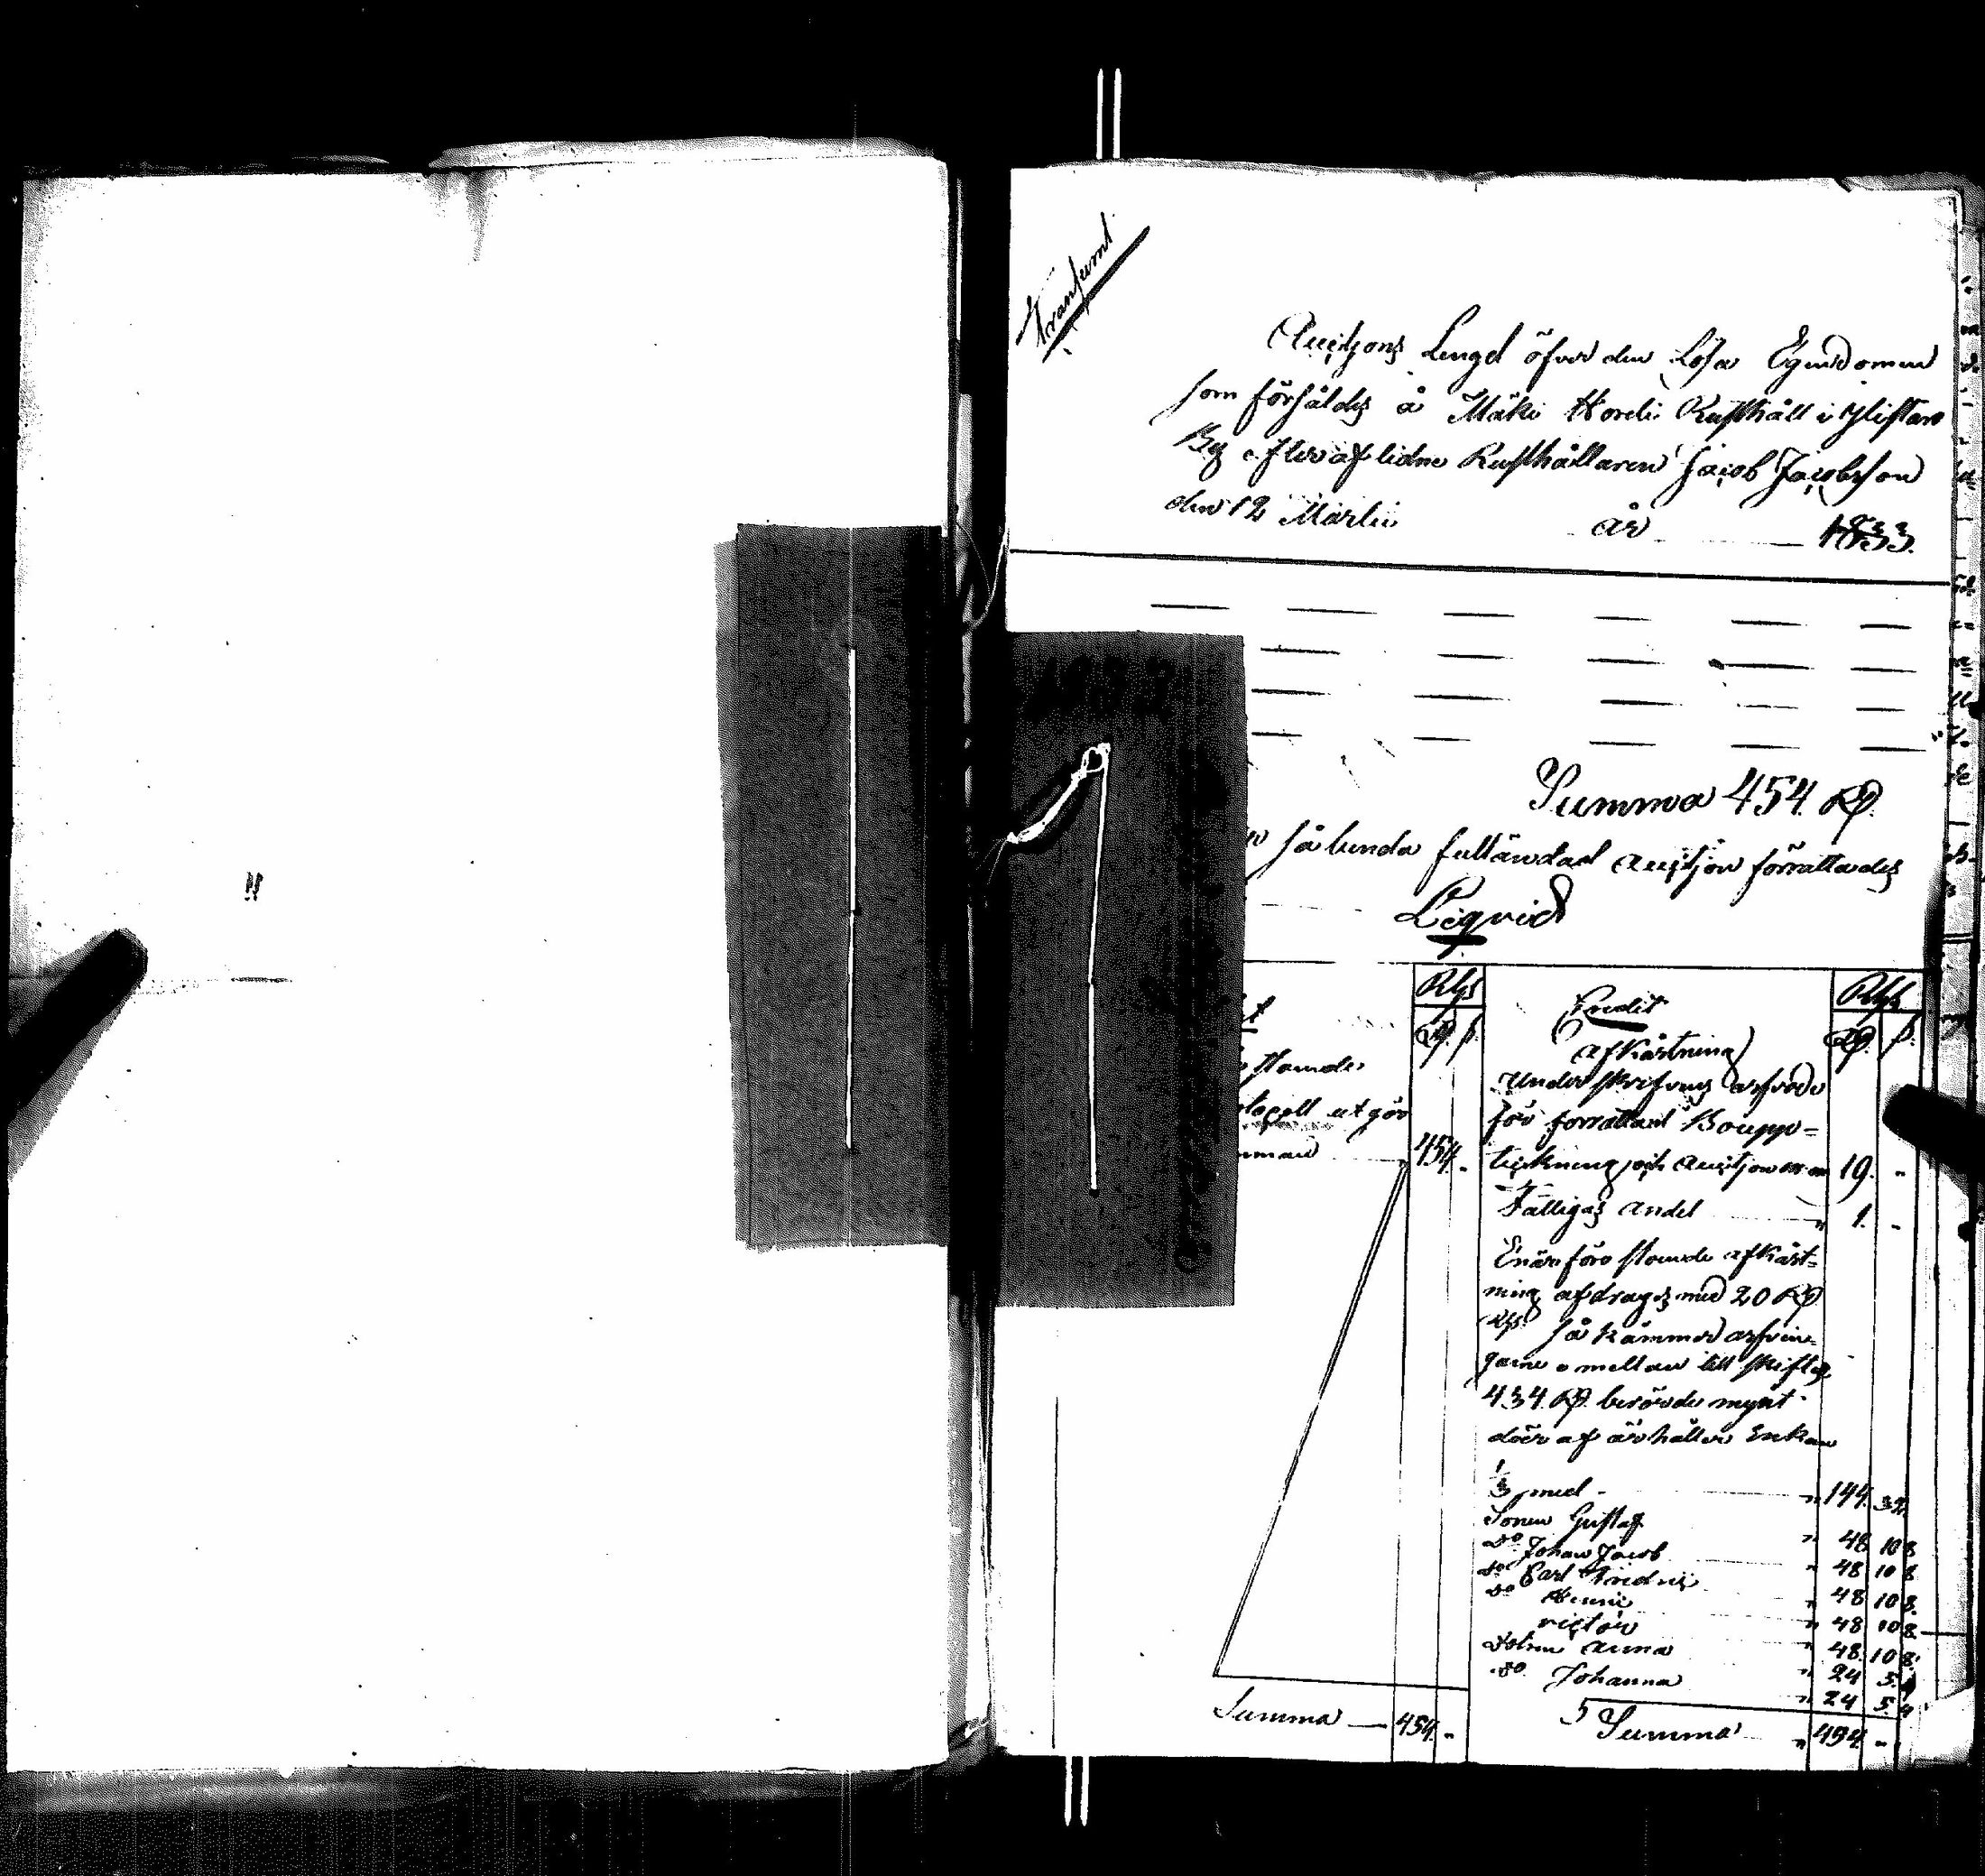 Transsumt
Auctjons Lengd öfver den Lösa Egendomen
som försåldes å Mäki Hordi Rusthåll i Ylistaro
By efter aflidne Rusthållaren Jacob Jacobsson
den 12 Martii år 1833.
Summa 454 R
så lunda fulländad auctjon förrättades
Liqvid
Rgs Credit Rgs
R s. afkårtning R s.
stående Under skrefvens arfvode
utgör för förrättad Bouppt=
454. - teckning och auctjonen " 19. -
Fattigas andel " 1. -
Enär före stående afkårt=
ning afdrages med 20 R
Rgs så kåmmer arfvin=
garne emellan till skiftes
434 R berörde mynt
där af ärhåller Enkan
1/3 med " 144. 32.
Sonen Gustaf " 48 10 8
do Johan Jacob " 48 10 8
do Carl Fredric " 48 10 8.
do Henric " 48 10 8
victor " 48. 10 8.
Dotren Anna " 24 5. 4
do Johanna " 24 5. 4
Summa — 454. - Summa " 454. -